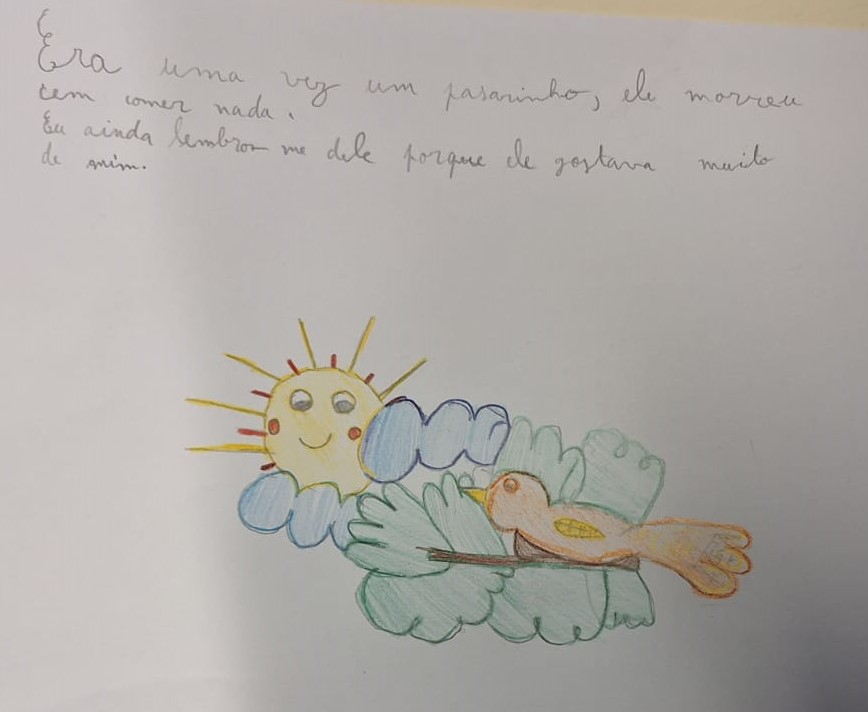 Era uma vez um pasarinho, ele morreu
cem comer nada.
Eu ainda lembron me dele porque ele gostava muito
de mim.